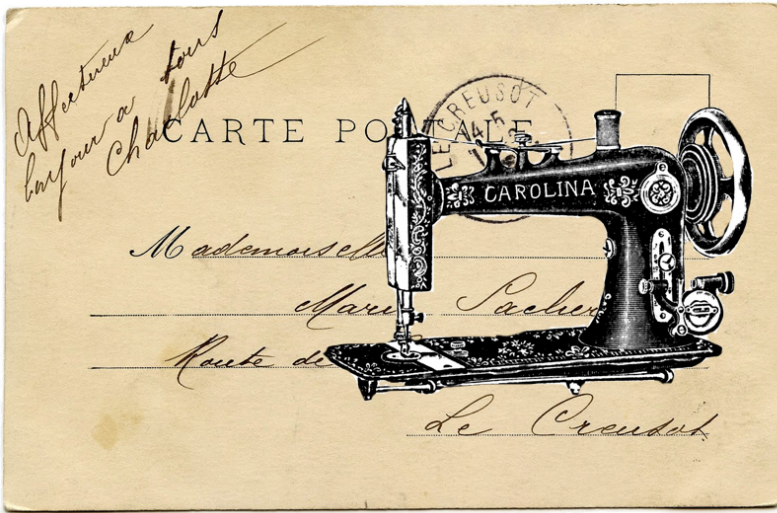 Affectueux
bonjour a tous
Charlotte
CARTE POSTALE
LE CREUSOT
CAROLINA
Mademoiselle
Marie
Route de
Le Creusot